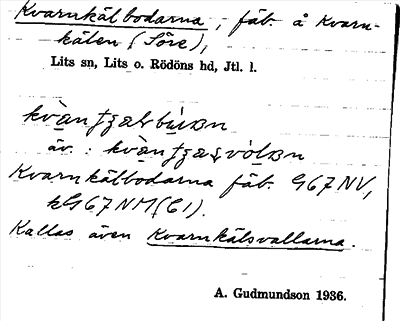 Kvarnkälbodarna, fäb. å Kvarn-
kälen (Söre),
Lits sn, Lits o. Rödöns hd, Jtl. l.
äv.:
Kvarnkälbodarna fäb. G67NV,
kG67NM(C1).
Kallas även Kvarnkälsvallarna.
A. Gudmundson 1936.